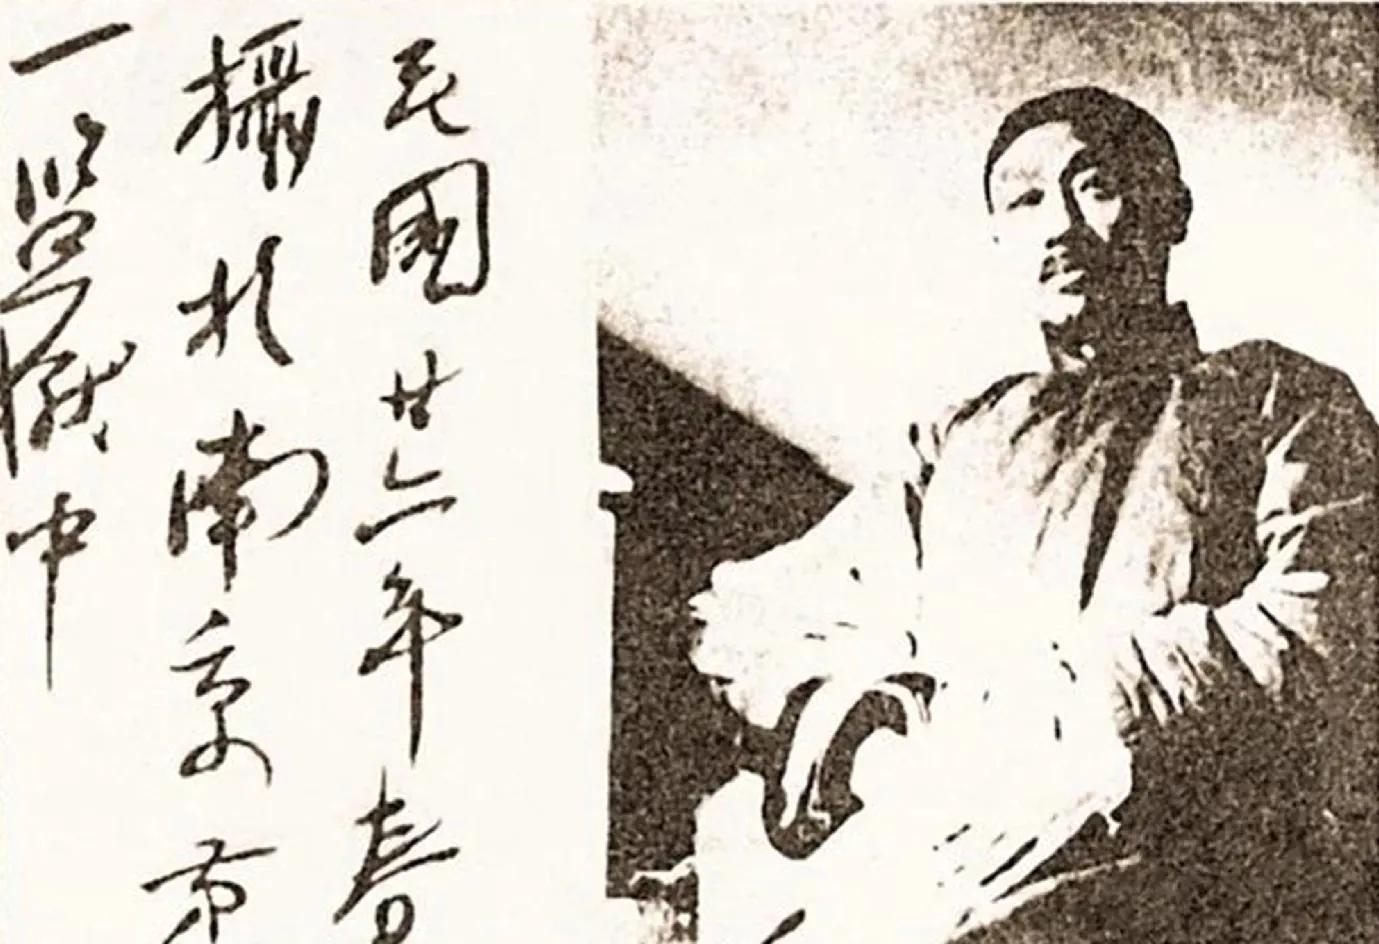 民國廿六年春
攝於南京第
一監獄中